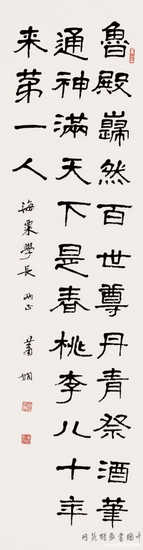 魯殿巋然百世尊丹青祭酒筆
通神滿天下是春桃李八十年
来第一人
海粟學長 正 蕭嫻